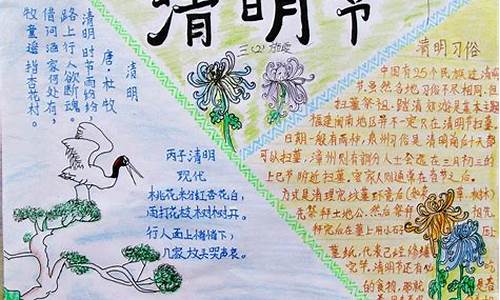 清明节
三(2)
清明
唐·杜牧
清明时节雨纷纷,
路上行人欲断魂。
借问酒家何处有,
牧童遥指杏花村。
丙子清明
现代
桃花米分红杏花白,
雨打花枝树树开。
行人面上情情下,
几家放头哭声哀。
清明习俗
中国有25个民族过清明
节,虽然各地习俗不尽相同,但
扫墓祭祖、踏清郊游是基本主
福建闽南地区并不一定只在清明节扫墓
日期一般有两种,泉州习俗是清明前后十天都
可以扫墓,漳州则有部分人士会选在三月初三的
上巳节附近扫墓,客家则通常在春节之后。
方式是清理完坟墓环境后
先祭拜土地公,然后祭拜
拜完后在墓上用小石
墓纸,代表已经修缮
完节,清明节还有
的食物,那就